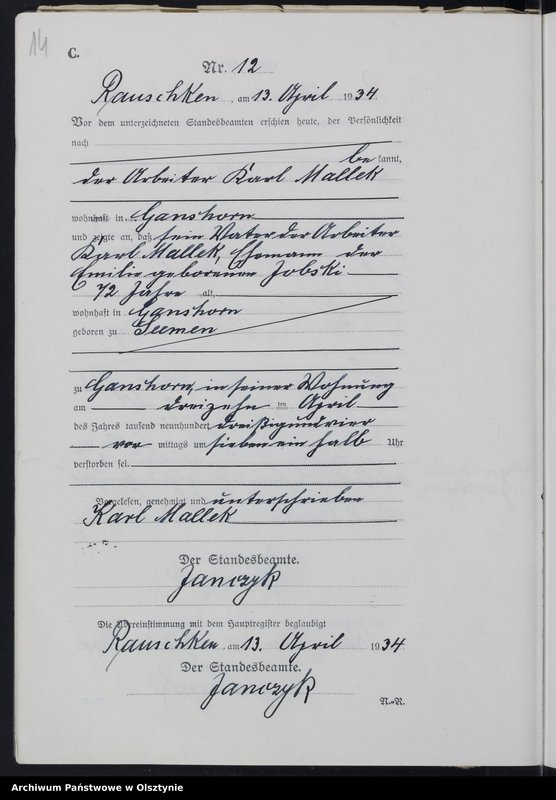 14
C.
Nr. 12
Rauschken, am 13. April 1934.
Vor dem unterzeichneten Standesbeamten erschien heute, der Persönlichkeit
nach
be kannt,
der Arbeiter Karl Mallek
wohnhaft in Ganshorn
und zeigte an, daß sein Vater der Arbeiter
Karl Mallek, Ehemann der
Emilie geborenen Jobski
72 Jahre alt,
wohnhaft in Ganshorn
geboren zu Seemen
zu Ganshorn, in seiner Wohnung
am dreizehn ten April
des Jahres tausend neunhundert dreißigundvier
vor mittags um sieben ein halb Uhr
verstorben sei.
Vorgelesen, genehmigt und unterschrieben
Karl Mallek
Der Standesbeamte.
Janczyk
Die Übereinstimmung mit dem Hauptregister beglaubigt
Rauschken, am 13. April 1934
Der Standesbeamte.
Janczyk
N.-R.
Archiwum Państwowe w Olsztynie